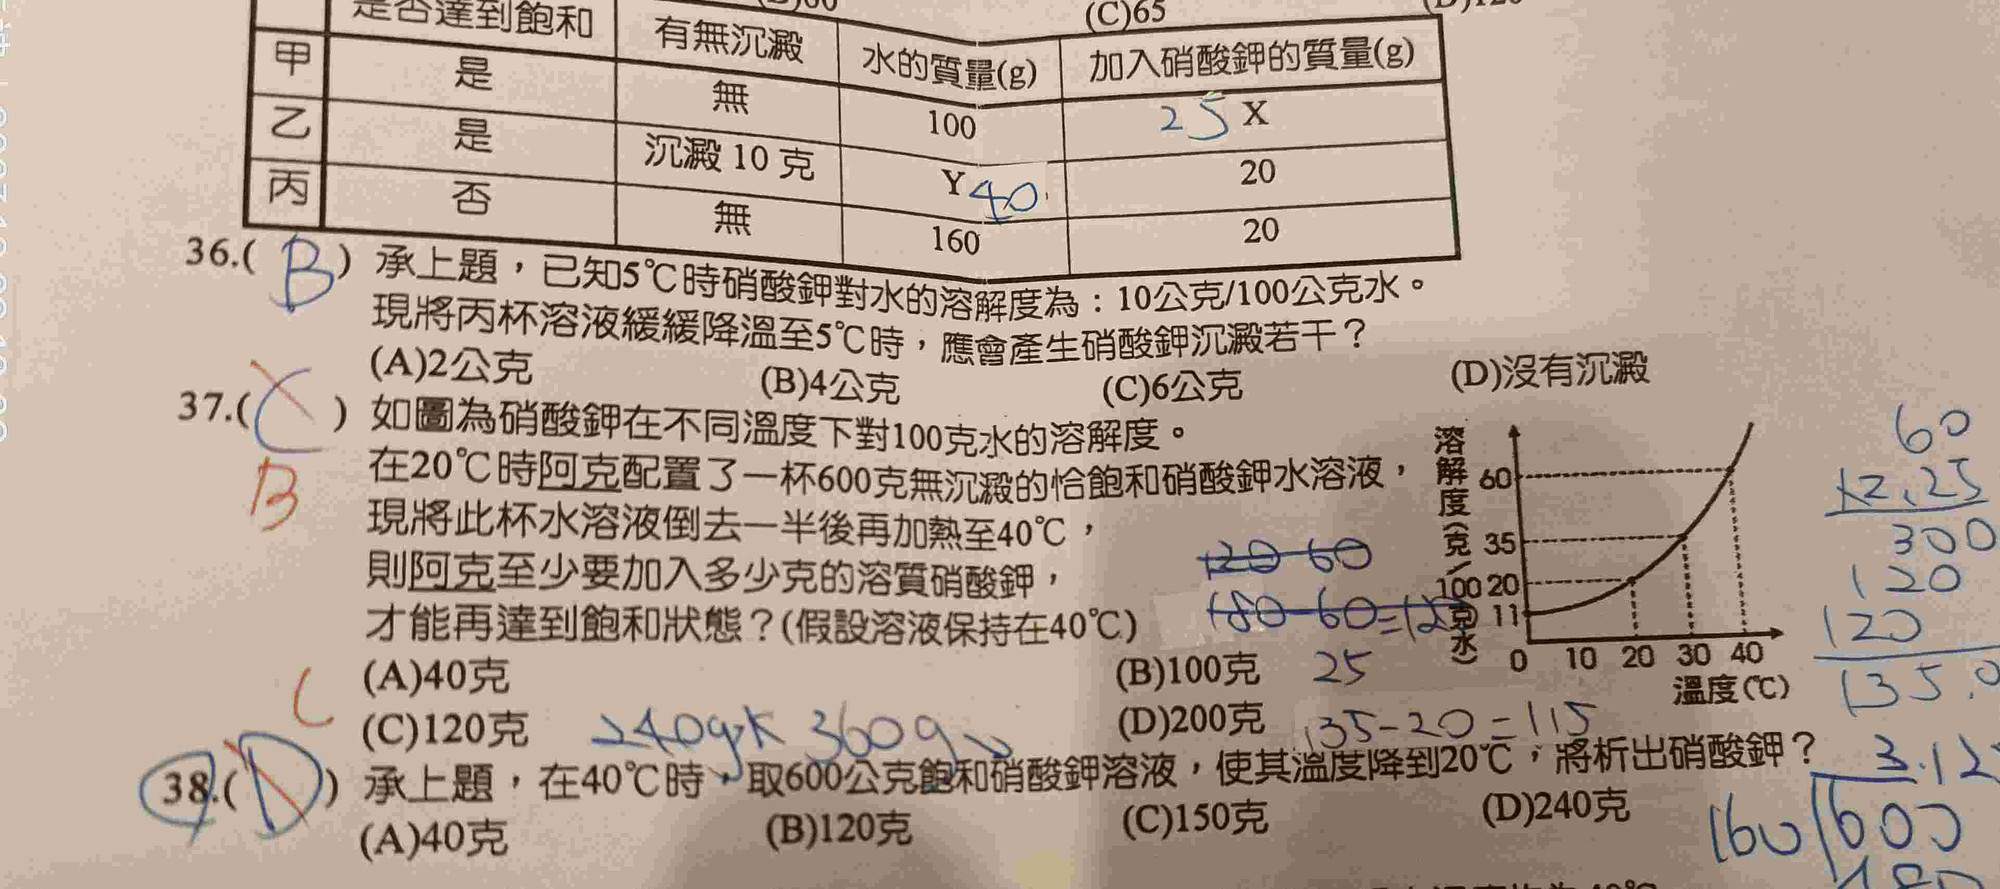 (C)65
是否達到飽和 有無沉澱 水的質量(g) 加入硝酸鉀的質量(g)
甲 是 無 100 25 X
乙 是 沉澱 10 克 Y 40 20
丙 否 無 160 20
36.( B ) 承上題，已知5℃時硝酸鉀對水的溶解度為：10公克/100公克水。
現將丙杯溶液緩緩降溫至5℃時，應會產生硝酸鉀沉澱若干？
(A)2公克 (B)4公克 (C)6公克 (D)沒有沉澱
37.( C ) 如圖為硝酸鉀在不同溫度下對100克水的溶解度。
B
在20℃時阿克配置了一杯600克無沉澱的恰飽和硝酸鉀水溶液，
現將此杯水溶液倒去一半後再加熱至40℃，
則阿克至少要加入多少克的溶質硝酸鉀，
才能再達到飽和狀態？(假設溶液保持在40℃)
(A)40克 (B)100克 25
(C)120克 (D)200克 135-20=115
溶解度(克/100克水)
60
35
20
11
0 10 20 30 40
溫度(℃)
120 60
180-60=12
60
×2.25
300
120
120
135.0
C
240g 360g
38.( D ) 承上題，在40℃時，取600公克飽和硝酸鉀溶液，使其溫度降到20℃，將析出硝酸鉀？
(A)40克 (B)120克 (C)150克 (D)240克
3.12
160 600